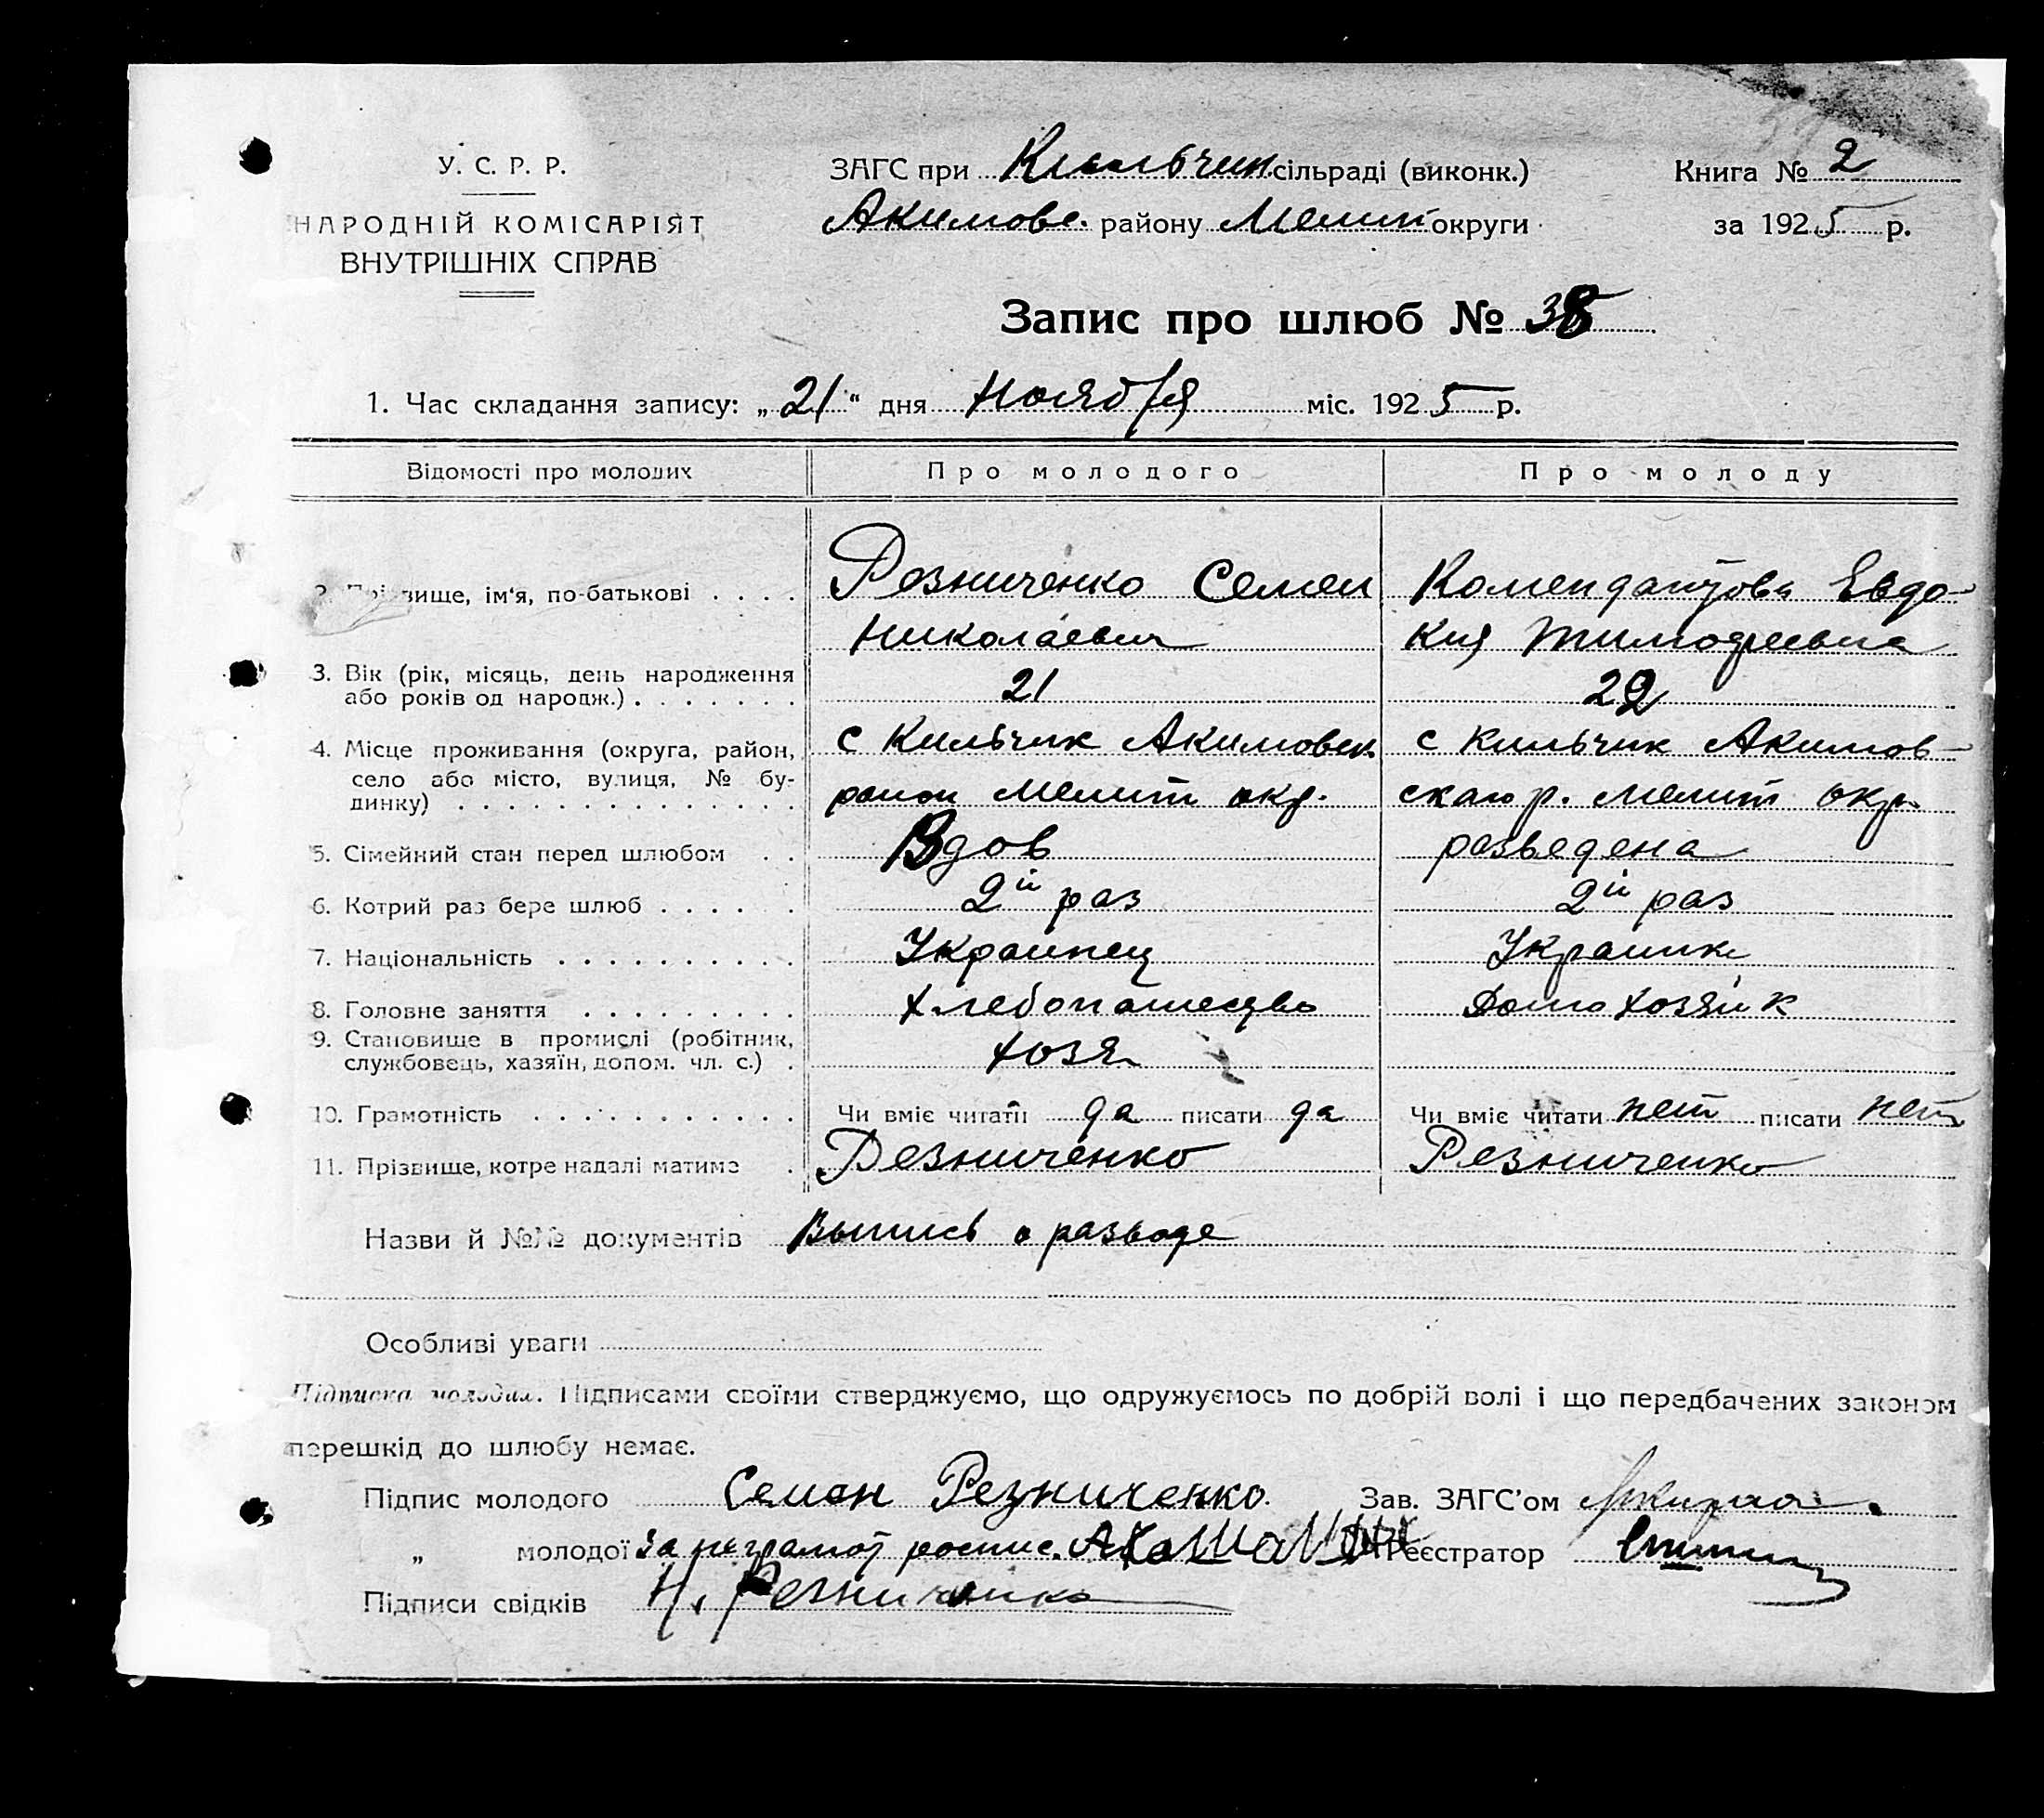 У. С. Р. Р.
НАРОДНІЙ КОМІСАРІЯТ
ВНУТРІШНІХ СПРАВ
ЗАГС при Кильбчин. сільраді (виконк.)
Акимовс. району Мелит округи
Книга № 2
за 1925 р.
Запис про шлюб № 38
1. Час складання запису: „21“ дня Ноября міс. 1925 р.
Відомості про молодих Про молодого Про молоду
2. Прізвище, ім'я, по-батькові . . . . Резниченко Семен Комендантова Евдо-
Николаевич кия Тимофеевна
3. Вік (рік, місяць, день народження
або років од народж.) . . . . . . . 21 22
4. Місце проживання (округа, район, с Кильчик Акимовск. с Кильчик Акимов-
село або місто, вулиця, № бу-
динку) . . . . . . . . . . . . . . район Мелит окр. ского р. Мелит окр.
5. Сімейний стан перед шлюбом . . Вдов разведена
6. Котрий раз бере шлюб . . . . . . 2й раз 2й раз
7. Національність . . . . . . . . . . Украинец Украинк
8. Головне заняття . . . . . . . . . Хлебопашество Домохозяйк
9. Становище в промислі (робітник,
службовець, хазяїн, допом. чл. с.) . хозя
10. Грамотність . . . . . . . . . . . Чи вміє читати да писати да Чи вміє читати нет писати нет
11. Прізвище, котре надалі матиме . Резниченко Резниченко
Назви й №№ документів Выпись о разводе
Особливі уваги
Підписка молодих. Підписами своїми стверджуємо, що одружуємось по добрій волі і що передбачених законом
перешкід до шлюбу немає.
Підпис молодого Семен Резниченко. Зав. ЗАГС'ом
„ молодої За неграмот роспис. Реєстратор
Підписи свідків Н. Резниченко